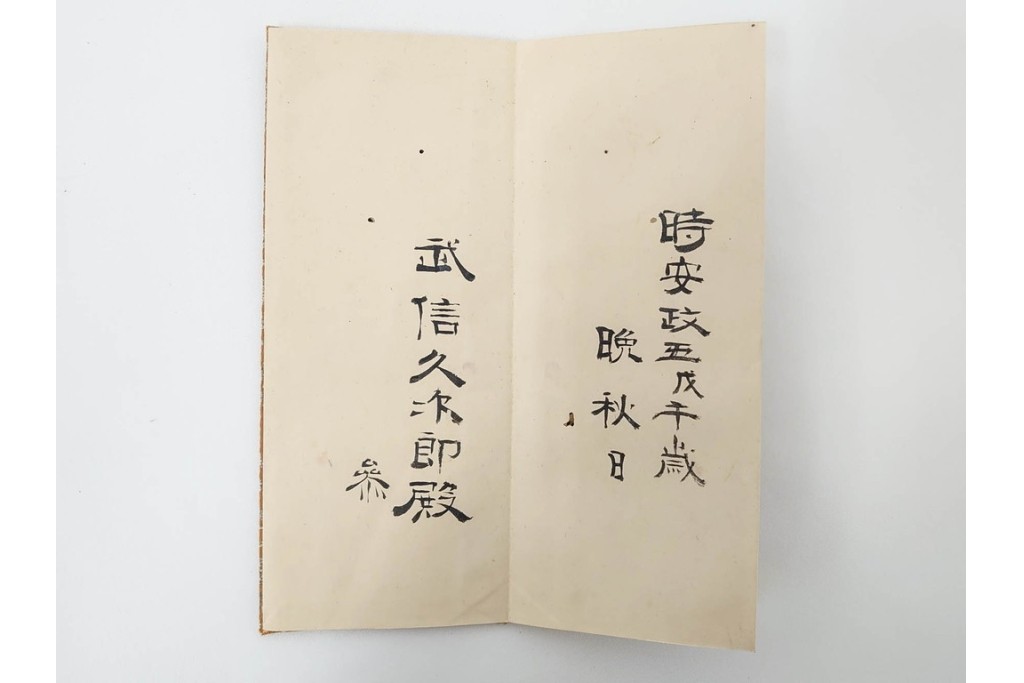 時安政五戊午歳
晩秋日
武信久次郎殿
参